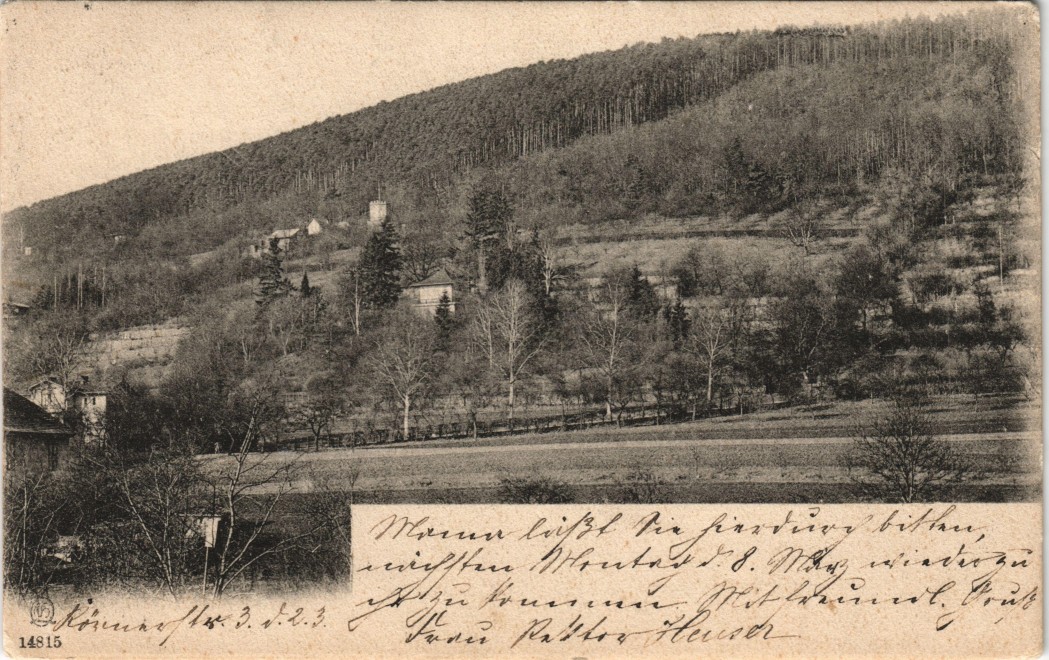 Mama läßt Sie hierdurch bitten,
nächsten Montag d. 8. März wieder zu
zu kommen. Mit freundl. Gruß
Frau Rektor Heuser
Körnerstr. 3. d. 2. 3.
14815